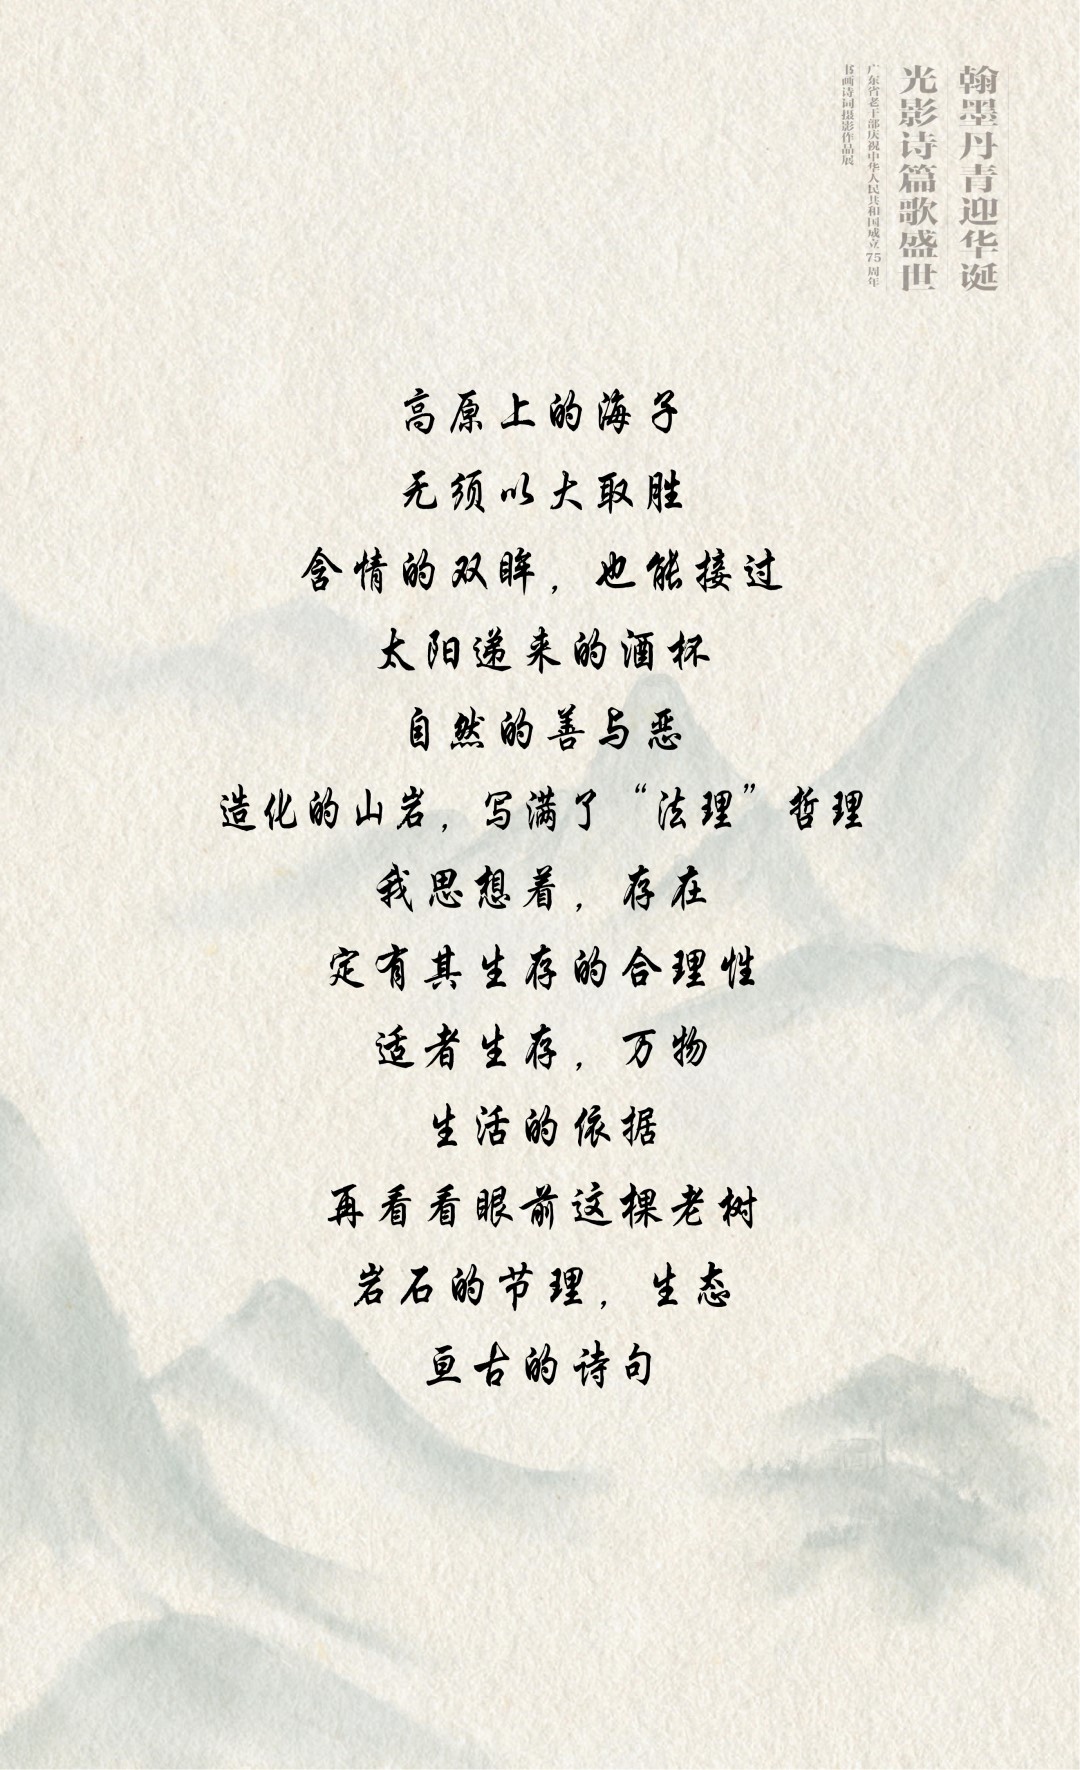 翰墨丹青迎华诞
光影诗篇歌盛世
广东省老干部庆祝中华人民共和国成立75周年
书画诗词摄影作品展
高原上的海子
无须以大取胜
含情的双眸，也能接过
太阳递来的酒杯
自然的善与恶
造化的山岩，写满了“法理”哲理
我思想着，存在
定有其生存的合理性
适者生存，万物
生活的依据
再看看眼前这棵老树
岩石的节理，生态
亘古的诗句